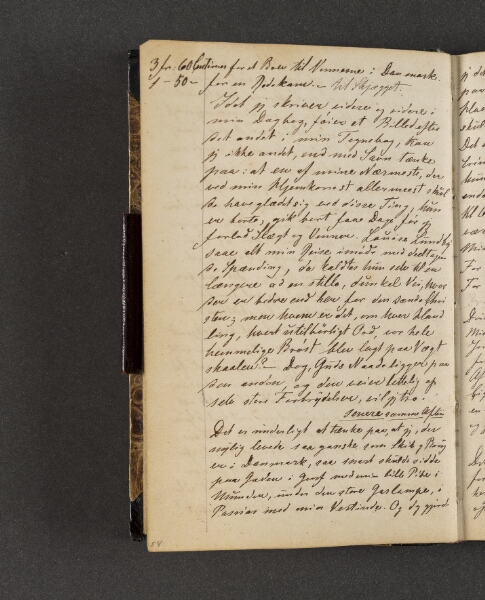 3 fr. 60 Centimer for et Brev til Vennerne i Danmark.
1 - 50 - for en Redekam. - til Skjægget.
Idet jeg skriver videre og videre i
min Dagbog, føier et Billed efter
det andet i min Tegnebog, kan
jeg ikke andet, end med Savn tænke
paa: at en af mine Nærmeste, der
ved min Hjemkomst allermest skul
de have glædet sig ved disse Ting, hun
er borte, gik bort faa Dage før jeg
forlod Slægt og Venner. Louise Lundby
saae alt min Reise imøde med deeltagen
de Spænding, da kaldtes hun selv ad en
længere ad en stille, dunkel Vei, hvor
der er bedre end her for den sande Chri
sten; men hvem er det, om hver Hand
ling, hvert utilbørligt Ord, vor hele
hemmelige Brøst blev lagt paa Vægt
skaalen? - Dog, Guds Naade ligger paa
den anden, og den veier lettelig op
selv store Forbrydelser, vil jeg tro.
senere samme Aften
Det er underligt at tænke paa, at jeg, der
nylig levede saa ganske som Skik og Brug
er i Danmark, saa snart skulde sidde
paa Gaden i Genf med en lille Pibe i
Munden, under den store Gaslampe, i
Passiar med min Vestinder. Og dog gjord